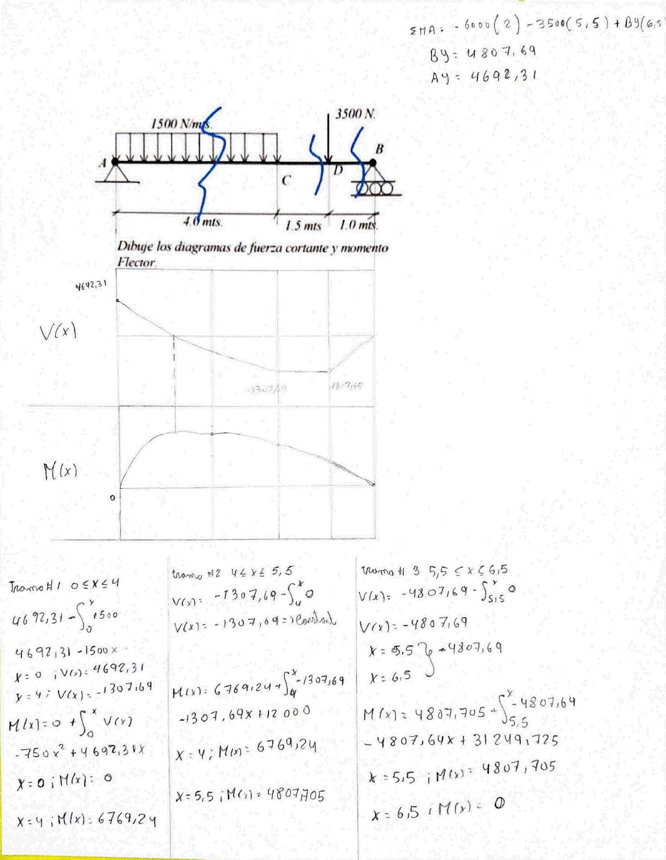 ΣMA= -6000(2) - 3500(5,5) + By(6,5
By= 4807,69
Ay= 4692,31
1500 N/mts.
3500 N.
A
B
C
D
4.0 mts.
1.5 mts
1.0 mts.
Dibuje los diagramas de fuerza cortante y momento
Flector.
4692,31
V(x)
-1307,69
M(x)
0
Tramo #1 0≤x≤4
4692,31 - ∫₀ˣ 1500
4692,31 - 1500x
x=0 ; V(x)= 4692,31
x=4; V(x)= -1307,69
M(x)= 0 + ∫₀ˣ V(x)
-750x² + 4692,31x
x=0 ; M(x)= 0
x=4 ; M(x): 6769,24
tramo #2 4≤x≤5,5
V(x)= -1307,69 - ∫₄ˣ 0
V(x)= -1307,69 => Constant
M(x)= 6769,24 + ∫₄ˣ -1307,69
-1307,69x + 12000
x=4; M(x)= 6769,24
x=5,5 ; M(x)= 4807,705
tramo # 3 5,5 ≤x≤6,5
V(x)= -4807,69 - ∫₅,₅ˣ 0
V(x)= -4807,69
x=5,5 } -4807,69
x=6,5
M(x)= 4807,705 + ∫₅,₅ˣ -4807,69
-4807,69x + 31249,725
x=5,5 ; M(x)= 4807,705
x=6,5 ; M(x)= 0